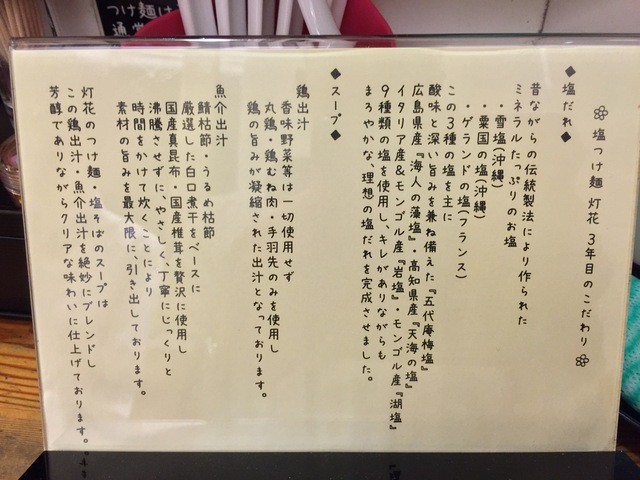 塩つけ麺 灯花 3年目のこだわり
◆塩だれ◆
昔ながらの伝統製法により作られた
ミネラルたっぷりのお塩
・雪塩(沖縄)
・粟国の塩(沖縄)
・ゲランドの塩(フランス)
この3種の塩を主に
酸味と深い旨みを兼ね備えた『五代庵梅塩』
広島県産『海人の藻塩』・高知県産『天海の塩』
イタリア産&モンゴル産『岩塩』・モンゴル産『湖塩』
9種類の塩を使用し、キレがありながらも
まろやかな、理想の塩だれを完成させました。
◆スープ◆
鶏出汁
香味野菜等は一切使用せず
丸鶏・鶏むね肉・手羽先のみを使用し
鶏の旨みが凝縮された出汁となっております。
魚介出汁
鯖枯節・うるめ枯節
厳選した白口煮干をベースに
国産真昆布・国産椎茸を贅沢に使用し
沸騰させずに、やさしく、丁寧にじっくりと
時間をかけて炊くことにより
素材の旨みを最大限に、引き出しております。
灯花のつけ麺・塩そばのスープは
この鶏出汁・魚介出汁を絶妙にブレンドし
芳醇でありながらクリアな味わいに仕上げております。
つけ麺は
通常